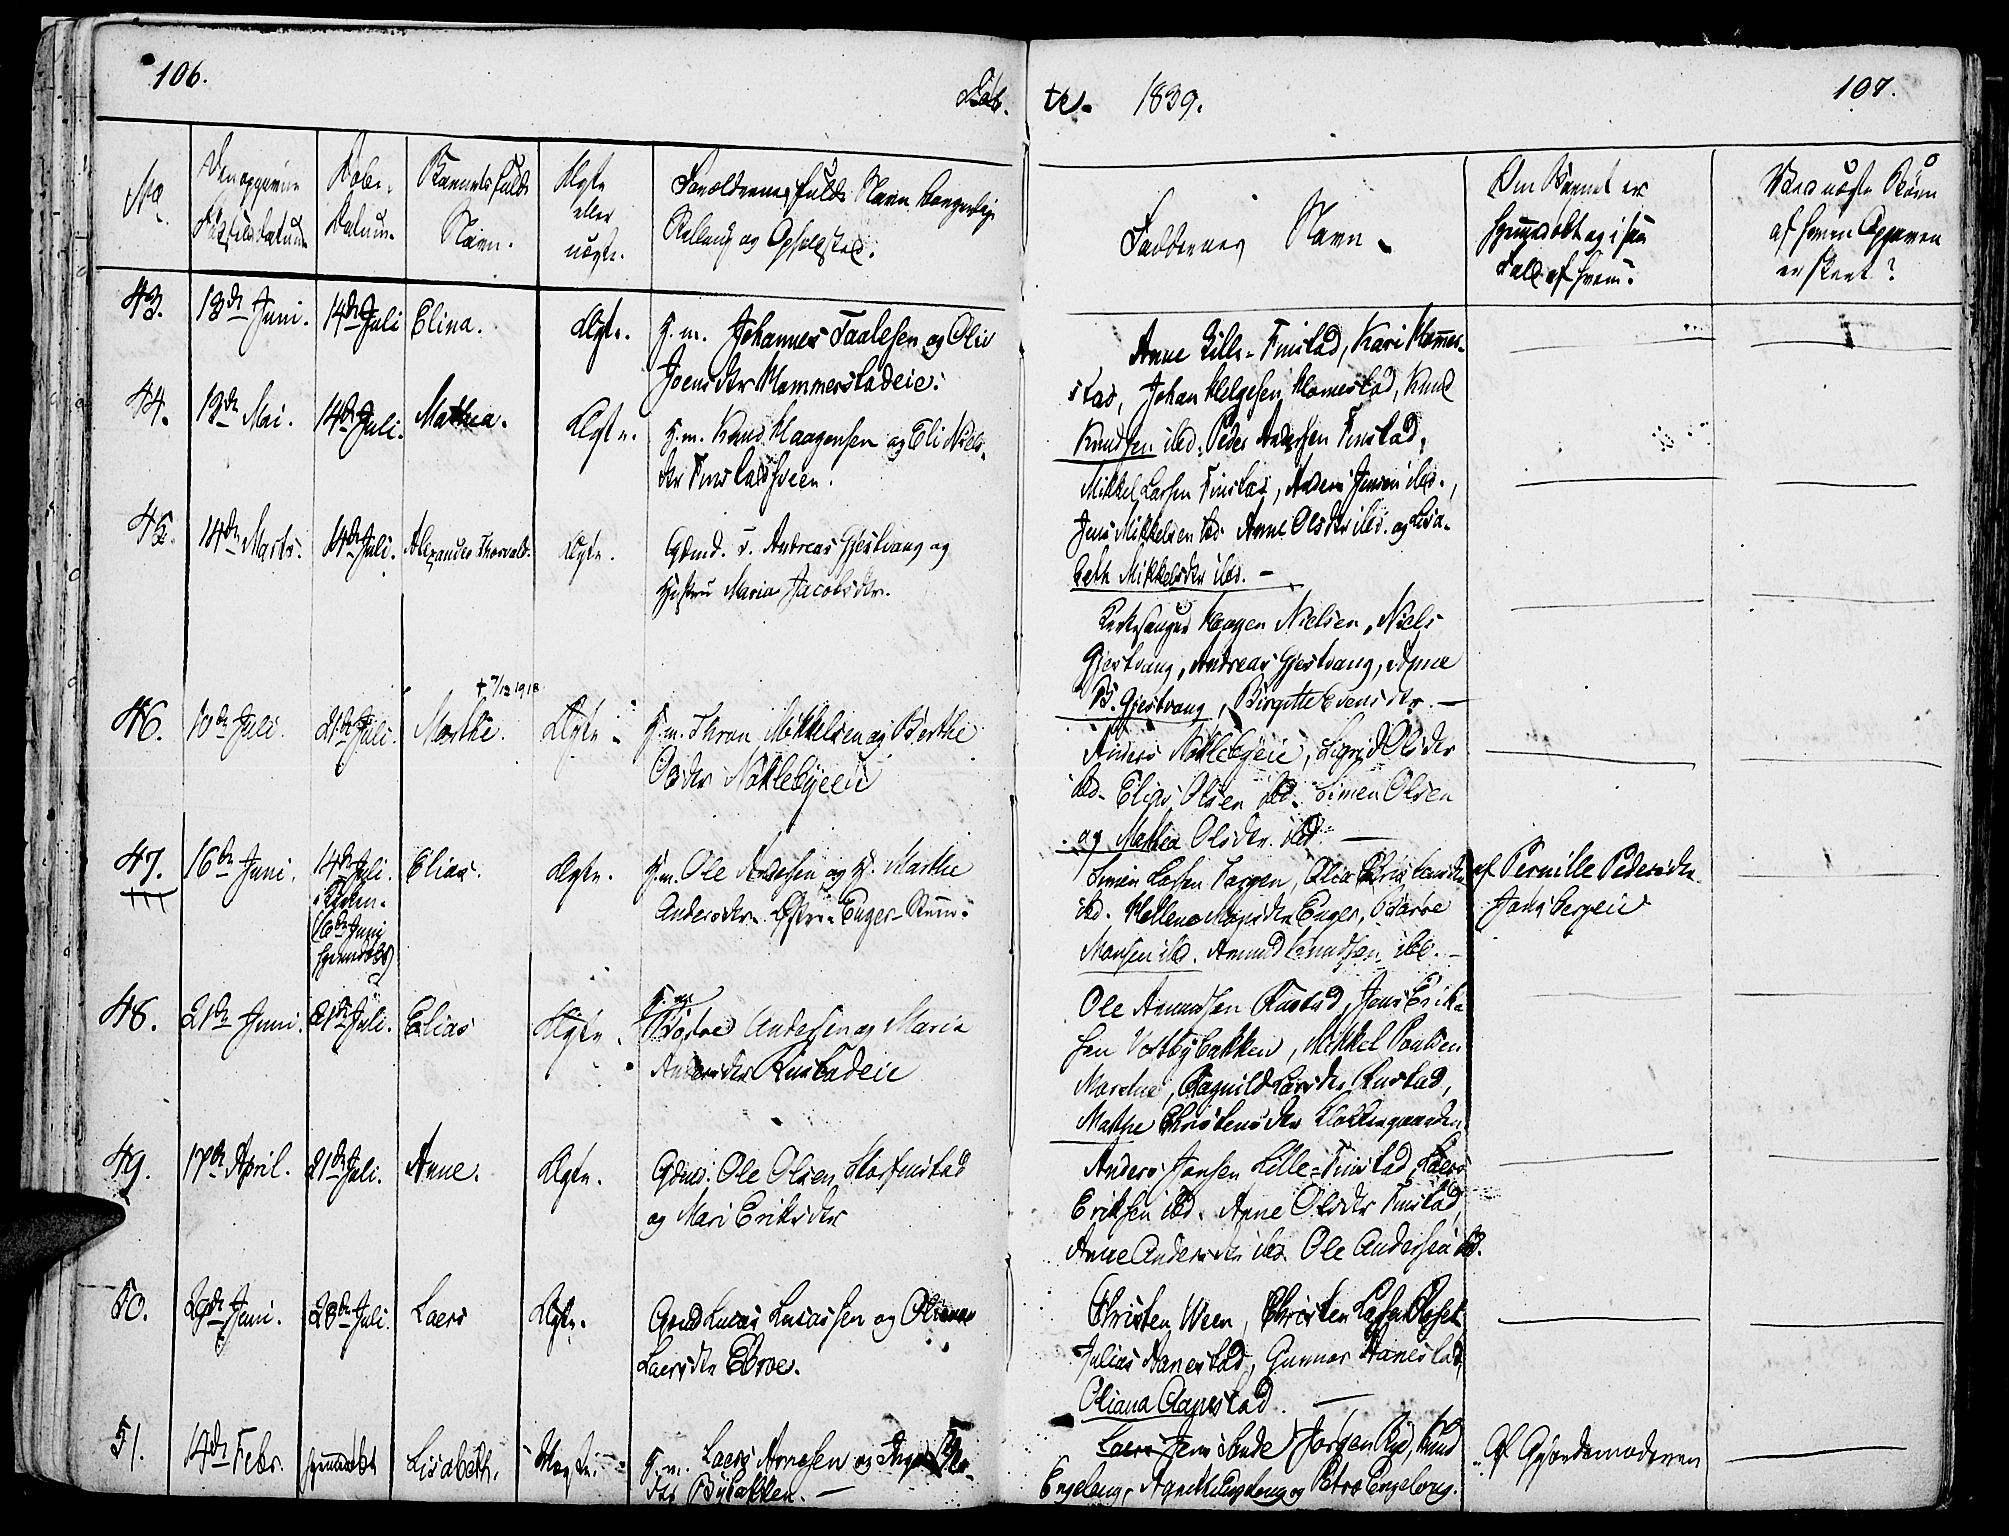 106.
Døb-
te. 1839.
107.
No
Den opgivne
Fødselsdatum.
Døbe-
Datum.
Barnets fulde
Navn.
Ægte
eller
uægte.
Forældrenes fulde Navn borgerlige
Stilling og Opholdsted.
Faddernes Navn.
Om Barnet er
hjemmedøbt og i saa
Fald af hvem?
Hvad uægte Børn
af hvem Opgaven
er skeet?
43. 13de Juni. 14de Juli Elina. Ægte. H. m. Johannes Taalesen og Olia
Joensdtr Hammerstadeie.
Anne Lille-Finstad, Kari Hamer-
stad, Johan Helgesen Hamerstad, Knud
Knudsen ibd. Peder Andersen Finstad.
44. 13de Mai. 14de Juli. Mathea. Ægte. H. m. Knud Haagensen og Eli Niels-
dtr Finstadsveen.
Mikkel Larsen Finstad, Anders Jensen ibd.,
Jens Mikkelsen ibd. Anne Olsdtr ibd. og Lisa-
beth Mikkelsdtr ibd. –
45. 14de Marts. 14de Juli. Alexander Thorvald. Ægte. Gdmd. S. Andreas Gjestvang og
Hustru Maria Jacobsdtr.
Kirkesanger Haagen Nielsen, Niels
Gjestvang, Andreas Gjestvang, Anne
B. Gjestvang, Birgitte Evensdtr. –
† 7/12 1918
46. 10de Juli. 21de Juli. Marthe. Ægte. H. m. Thron Mikkelsen og Berthe
Olsdtr Nøklebyeeie
Anders Nøklebyeie, Sigrid Olsdtr
ibd. Elias Olsen ibd. Simen Olsen
og Mathea Olsdtr ibd. –
47. 16de Juni. 14de Juli. Elias. Ægte. H. m. Ole Andersen og H. Marthe
i Kirken.
(16de Juni
hjemdøbt)
Andersdtr. Østre-Enger-Stuen.
Simen Larsen Torgen, Olia Christensdtr
ibd. Hellene Mogsdtr Enger, Baroe
Hansen ibd. Amund Knudsen ibd. –
af Pernille Pedersdtr
Jongsbergeie
48. 21de Juni. 21de Juli. Elias Ægte. H. m.
Andersen og Maria
Andersdtr Rustadeie
Ole Amundsen Rustad, Jens Erik-
sen Vestbybakken, Mikkel Poulsen
Ragnild Larsdtr Rustad,
Marthe Christensdtr Klokkergaarden
49. 17de April. 21de Juli. Anne. Ægte. Gdmd. Ole Olsen Storfinstad
og Mari Eriksdtr
Anders Jensen Lille-Finstad, Laers
Eriksen ibd. Anne Olsdtr Finstad,
Anne Andersdtr ibd. Ole Andersen ibd.
50. 29de Juni. 28de Juli. Laers Ægte. Gmd Lucas Lucassen og Oliana
Laersdtr Ebroe.
Christen Ween, Christen Larsen
Julius Aanestad, Gunnar Aanestad,
Oliana Aanestad. –
51. 14de Febr. hjemmedøbt Lisabeth. Uægte. H. m. Laers Arnesen og
Bybakken. –
Laers Jens Sande, Jørgen Rye, Knud
Engelaug, Agnethe Engelaug og Petro Engelaug.
Af Gjordemoderen